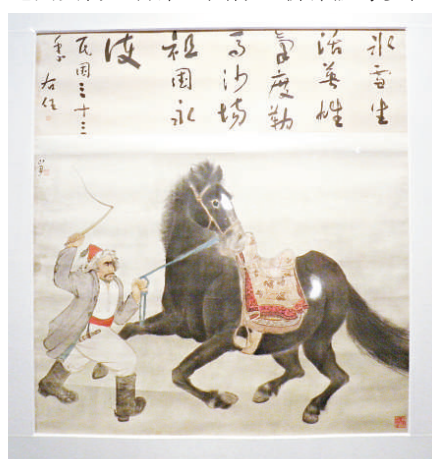 冰雪生
活英雄
氣度勒
馬沙場
祖国永
護
民国三十三
年 右任